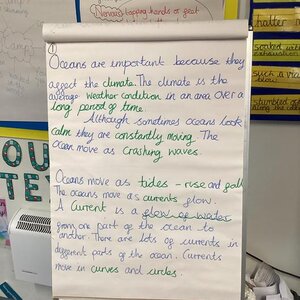 Nervous tapping hands or feet
Oceans are important because they
affect the climate. The climate is the
average weather condition in an area over a
long period of time.
Although sometimes oceans look
calm they are constantly moving. The
ocean move as crashing waves.
Oceans move as tides - rise and fall
The oceans move as currents flow.
A current is a flow of water
from one part of the ocean to
another. There are lots of currents in
different parts of the ocean. Currents
move in curves and circles.
OU
TES